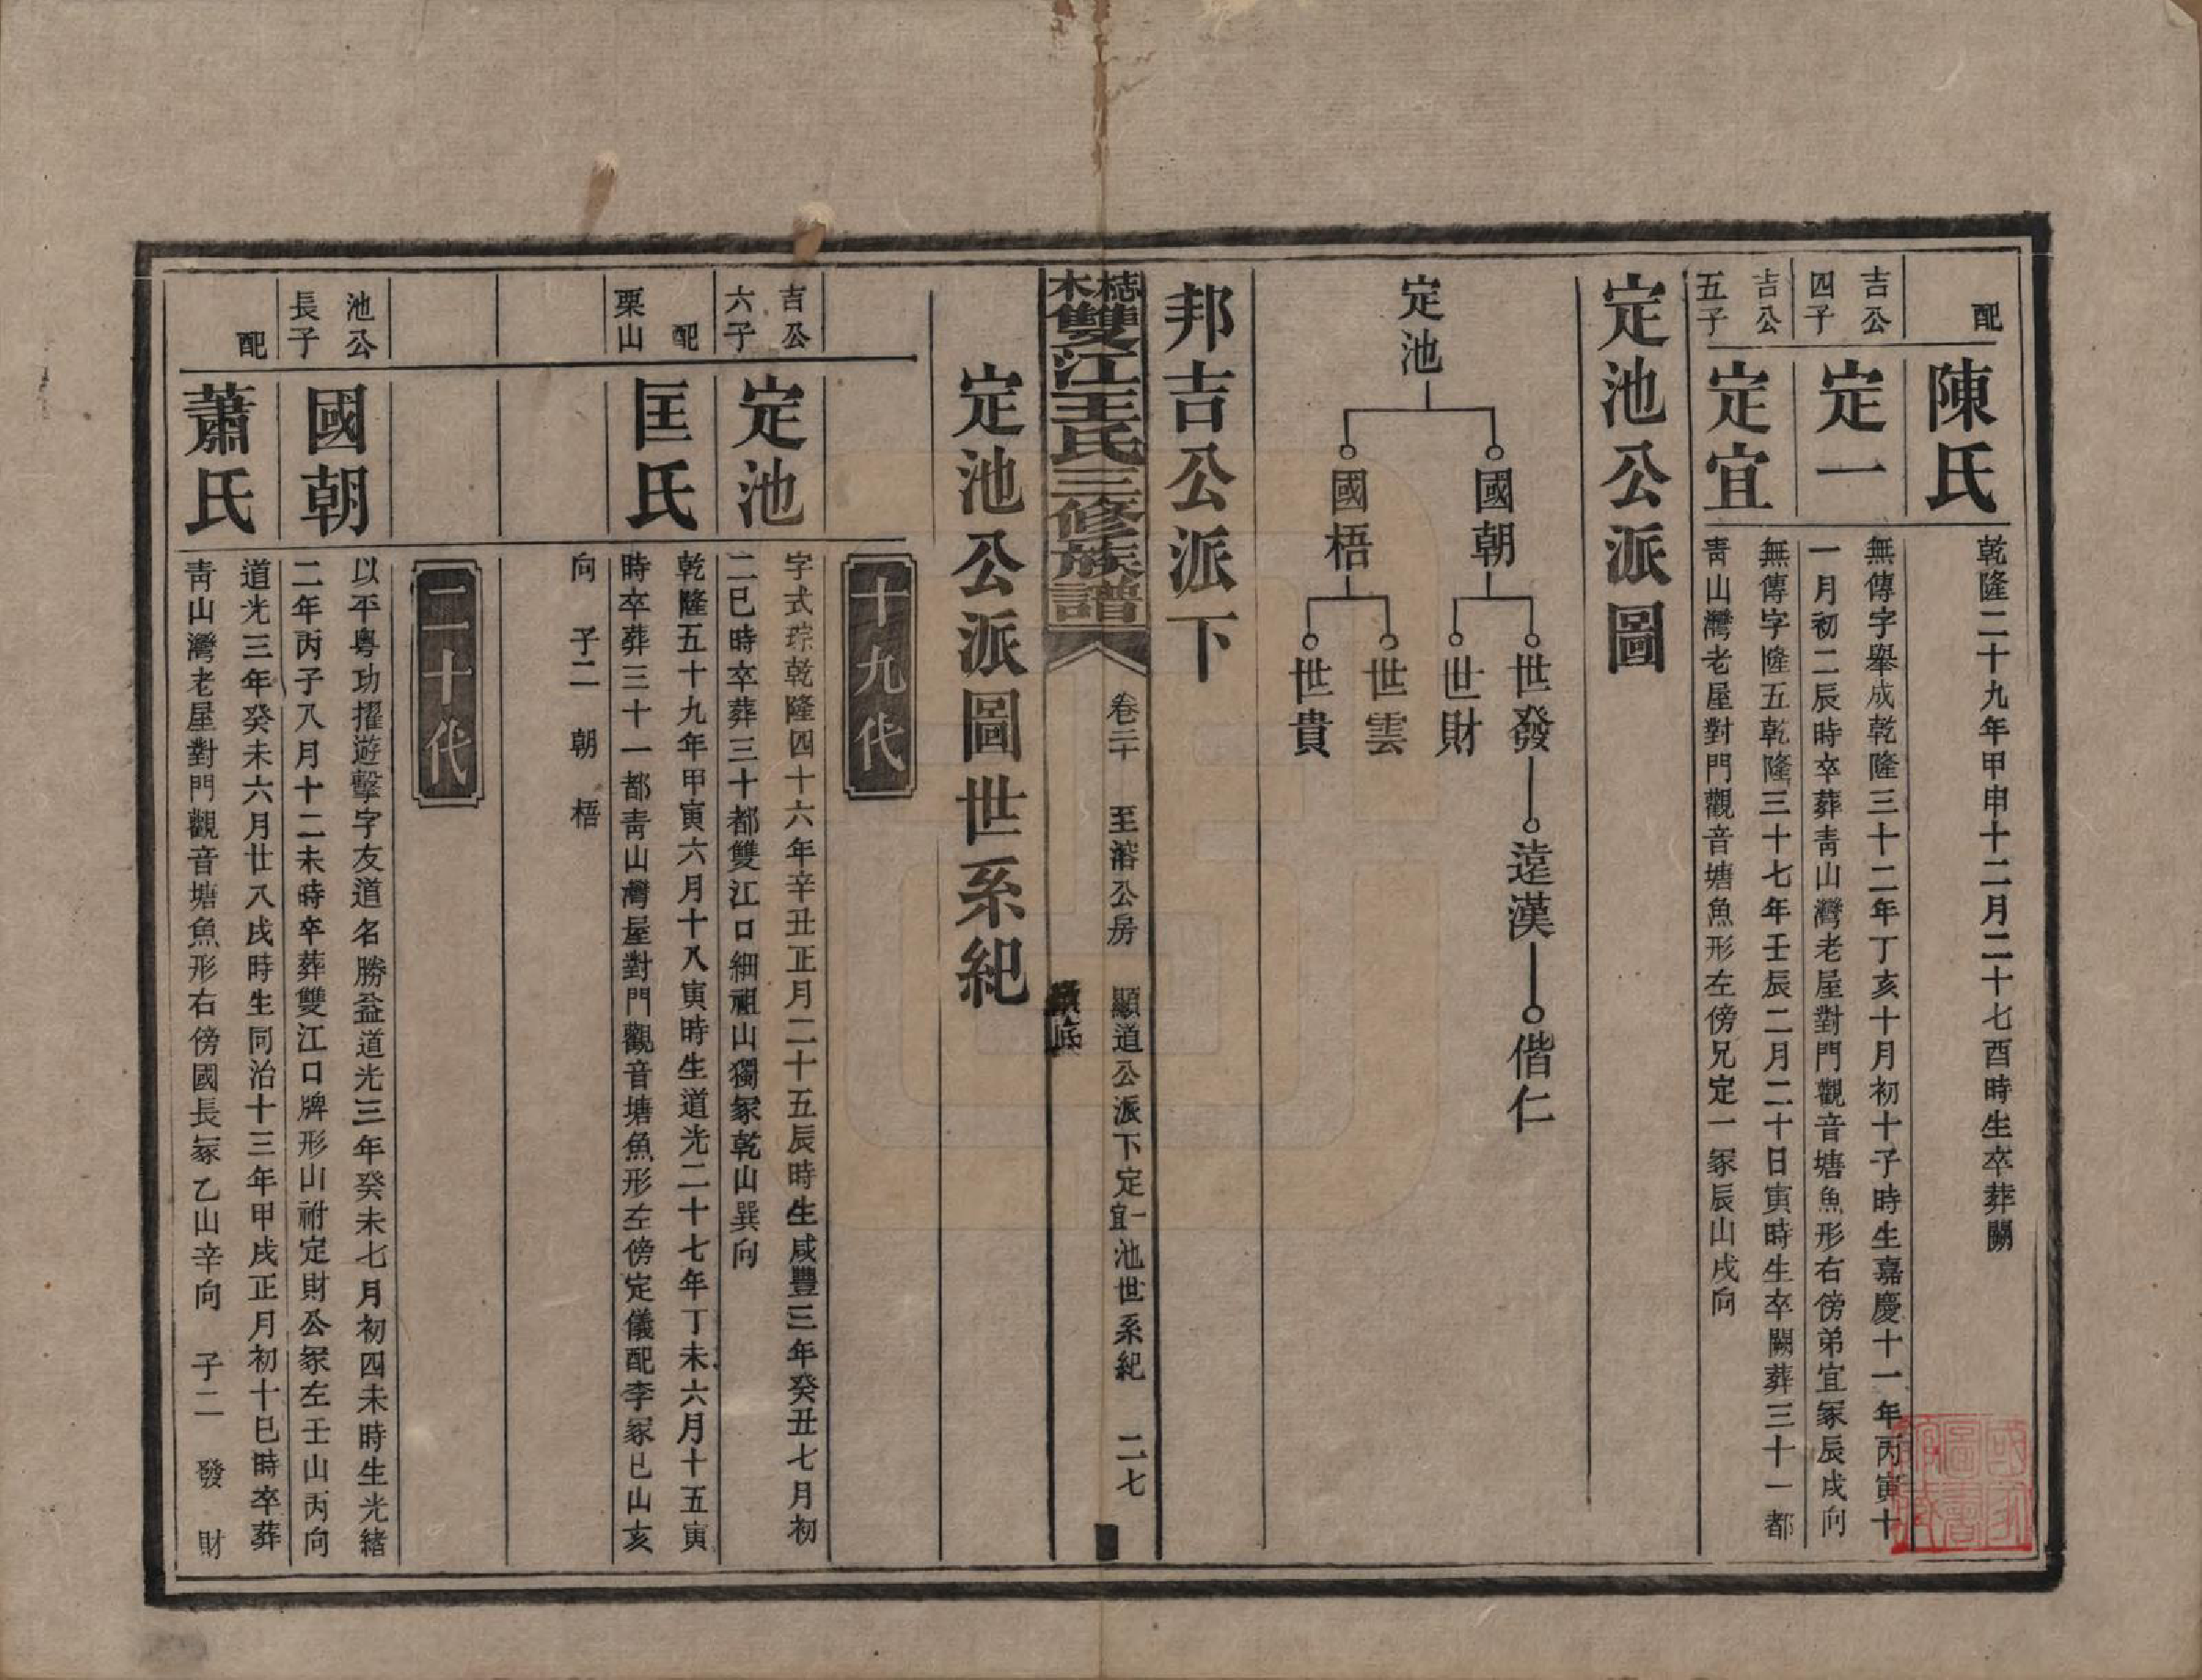 配
陳氏
乾隆二十九年甲申十二月二十七酉時生卒葬闕
吉公
四子
定一
無傳字舉成乾隆三十二年丁亥十月初十子時生嘉慶十一年丙寅十
一月初二辰時卒葬青山灣老屋對門觀音塘魚形右傍弟宜冢辰戌向
吉公
五子
定宜
無傳字隆五乾隆三十七年壬辰二月二十日寅時生卒闕葬三十一都
青山灣老屋對門觀音塘魚形左傍兄定一冢辰山戌向
定池公派圖
定池
國朝
國梧
世發
世財
世雲
世貴
遠漢
偕仁
邦吉公派下
梽木雙江王氏三修族譜
卷二十
至溶公房
顯道公派下定一宜池世系紀
二七
定池公派圖世系紀
十九代
吉公
六子
定池
字式琮乾隆四十六年辛丑正月二十五辰時生咸豐三年癸丑七月初
二巳時卒葬三十都雙江口細祖山獨冢乾山巽向
配
栗山
匡氏
乾隆五十九年甲寅六月十八寅時生道光二十七年丁未六月十五寅
時卒葬三十一都青山灣屋對門觀音塘魚形左傍定儀配李冢巳山亥
向 子二 朝 梧
二十代
池公
長子
國朝
以平粵功擢遊擊字友道名勝益道光三年癸未七月初四未時生光緒
二年丙子八月十二未時卒葬雙江口牌形山祔定財公冢左壬山丙向
配
蕭氏
道光三年癸未六月廿八戌時生同治十三年甲戌正月初十巳時卒葬
青山灣老屋對門觀音塘魚形右傍國長冢乙山辛向 子二 發 財